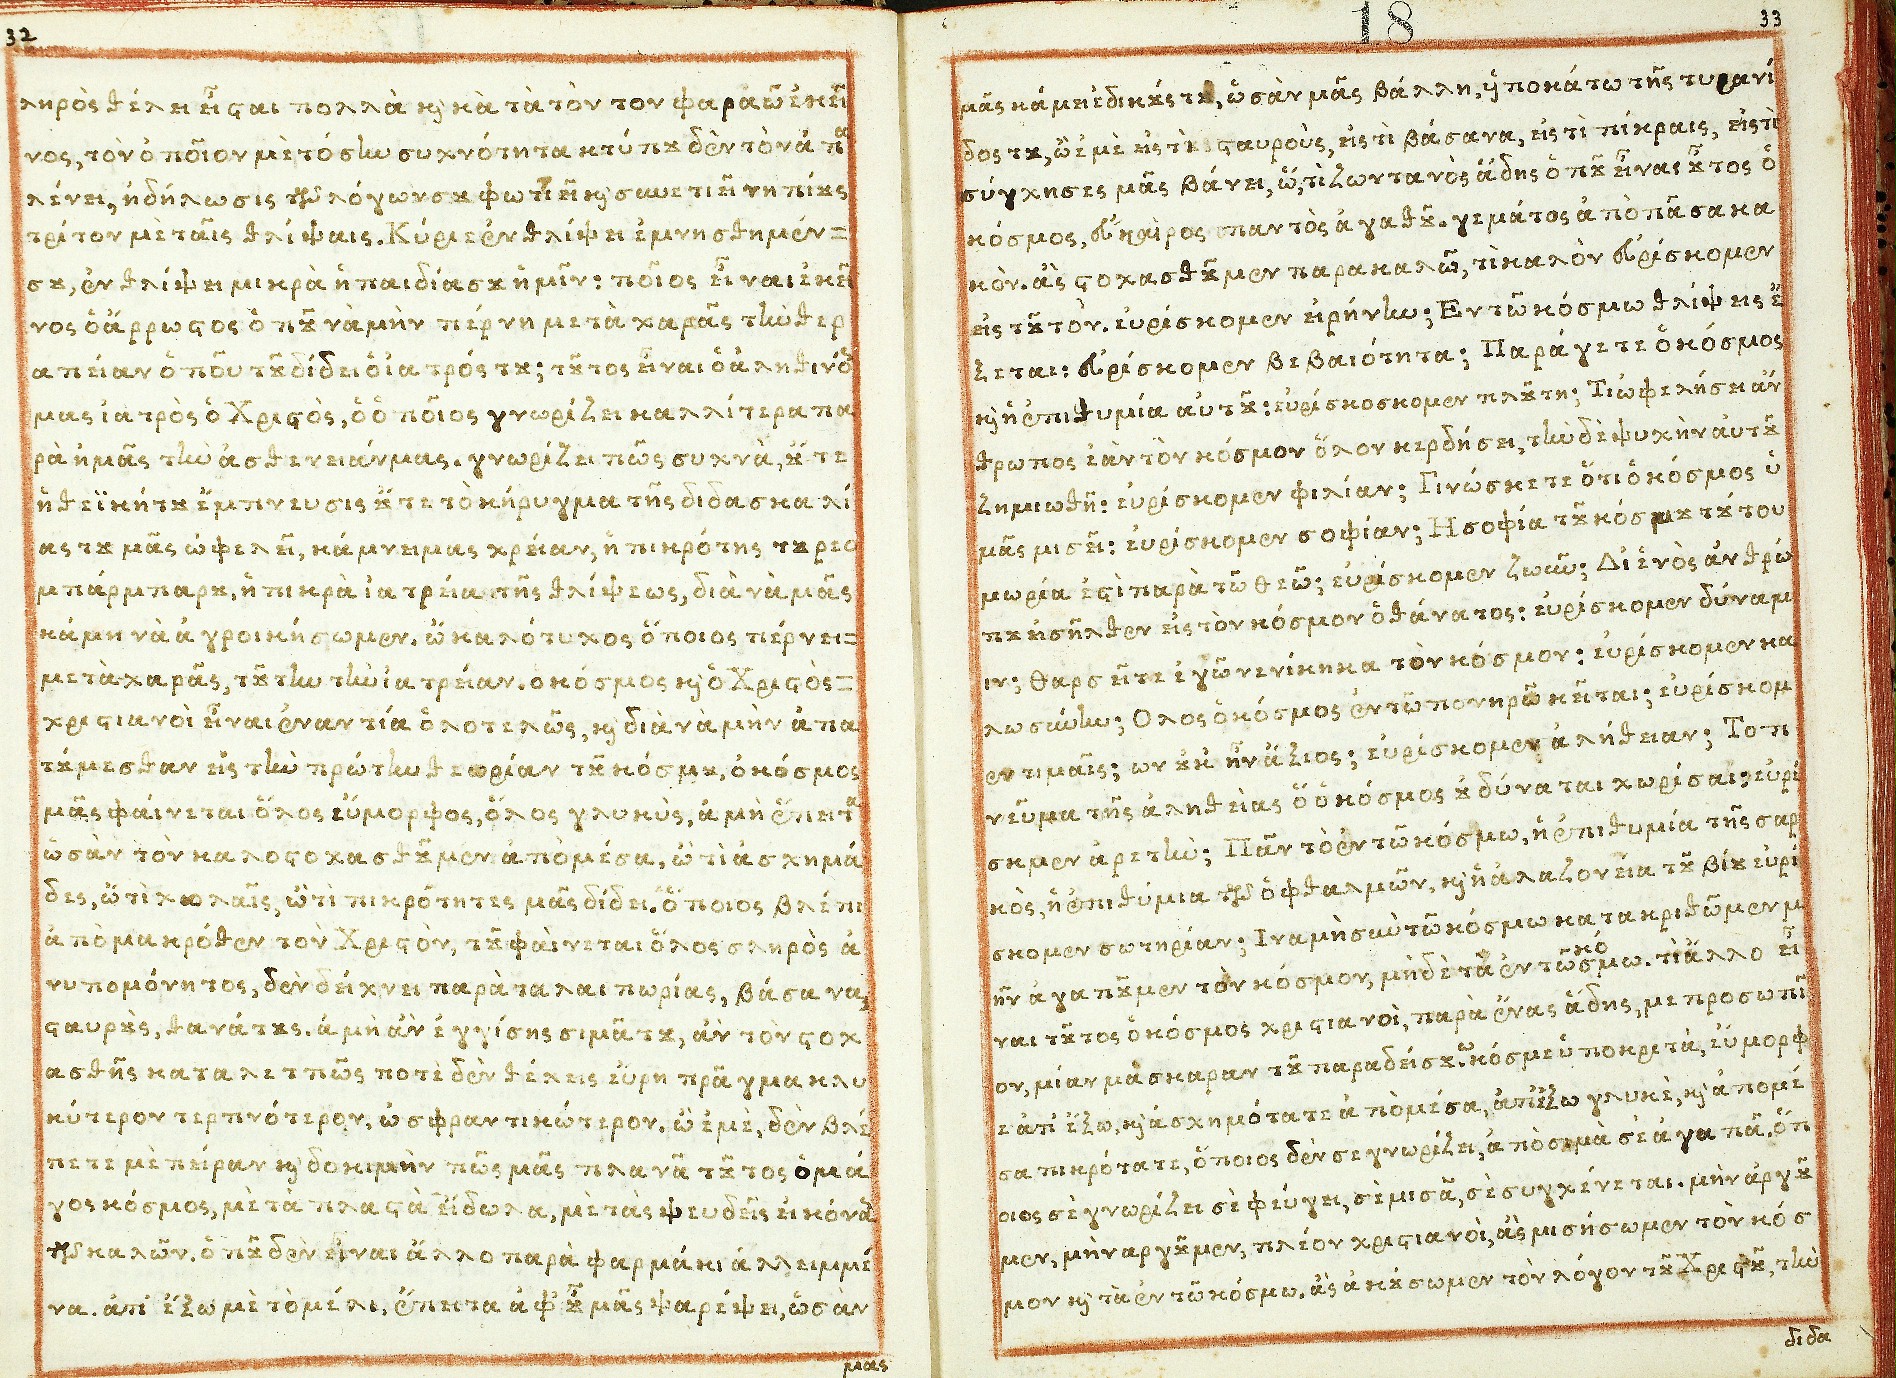 32
ληρὸς θέλει εἶσαι πολλὰ κὶ κὰ τὰ τὸν τον φαραῶ ἐκεῖ
νος, τὸν ὁποῖον μὲ τόσην συχνότητα κτύπȣ δὲν τὸν ἀπα
λένει, ἡ δήλωσις τῶν λόγων σȣ φωτίει κὶ συνετιεῖ νηπίȣς
τρίτον μὲ ταῖς θλίψαις. Κύριε ἐν θλίψει ἐμνήσθημέν=
σȣ, ἐν θλίψει μικρὰ ἡ παιδία σȣ ἡμῖν: ποῖος εἶναι ἐκεῖ
νος ὁ ἄρρωστος ὁπȣ͂ νὰ μὴν πέρνη μετὰ χαρᾶς τὴν θερ
απείαν ὁποῦ τȣ͂ δίδει ὁ ἰατρός τȣ; τȣ͂τος εἶναι ὁ ἀληθινός
μας ἰατρὸς ὁ Χριστὸς, ὁ ὁποῖος γνωρίζει καλλίτερα πα
ρὰ ἡμᾶς τὴν ἀσθένειάν μας. γνωρίζει πῶς συχνὰ, ȣ̓́ τε
ἡ θεϊκή τȣ ἔμπνευσις ȣ̓́ τε τὸ κήρυγμα τῆς διδασκαλί
ας τȣ μᾶς ὠφελεῖ, κάμνει μας χρείαν, ἡ πικρότης τȣ ρεο
μπάρμπαρȣ, ἡ πικρὰ ἰατρεία τῆς θλίψεως, διὰ νὰ μᾶς
κάμη νὰ ἀγροικήσωμεν. ὢ καλότυχος ὅποιος πέρνει=
μετὰ χαρᾶς, τȣ́την τὴν ἰατρείαν. ο κόσμος κὶ ὁ Χριστὸς=
χριστιανοὶ εἶναι ἐναντία ὁλοτελῶς, κὶ διὰ νὰ μὴν ἀπα
τȣ́μεσθαν εἰς τὴν πρώτην θεωρίαν τȣ͂ κόσμȣ, ὁ κόσμος
μᾶς φαίνεται ὅλος εὔμορφος, ὅλος γλυκὺς, ἀμὴ ἔπειτα
ὡσὰν τὸν καλοστοχασθȣ͂μεν ἀπὸ μέσα, ὢ τὶ ἀσχημά
δες, ὢ τὶ χολαῖς, ὢ τὶ πικρότητες μᾶς δίδει. ὅποιος βλέπει
ἀπὸ μακρόθεν τὸν Χριστὸν, τȣ͂ φαίνεται ὅλος σκληρὸς ἀ
νυπομόνητος, δὲν δείχνει παρὰ ταλαιπωρίας, βάσανα,
σταυρȣ̀ς, θανάτȣς. ἀμὴ ἀν ἐγγίσης σιμᾶ τȣ, ἀν τὸν στοχ
ασθῆς καταλεπτῶς ποτὲ δὲν θέλεις εὕρη πρᾶγμα κλυ
κύτερον τερπνότερον, ὠσφραντικώτερον. ὢ ἐμὲ, δὲν βλέ
πετε μὲ πεῖραν κὶ δοκιμὴν πῶς μᾶς πλανᾶ τȣ͂τος ὁ μά
γος κόσμος, μὲ τὰ πλαστὰ εἴδωλα, μὲ τὰς ψευδεῖς εἰκόνας
τῶν καλῶν. ὁπȣ͂ δὲν εἶναι ἄλλο παρὰ φαρμάκι ἀλλειμμέ
να. ἀπ' ἔξω μὲ τὸ μέλι, ἔπειτα ἀφ' ȣ͂̓ μᾶς ψαρέψει, ὡσὰν
μας
18
33
μᾶς κάμη ἐδικȣ́ς τȣ, ὡσὰν μᾶς βάλλη, ὑποκάτω τῆς τυρανί
δος τȣ, ὢ ἐμὲ εἰς τὶ σταυροὺς, εἰς τὶ βάσανα, εἰς τὶ πίκραις, εἰς τὶ
σύγχησες μᾶς βάνει, ὢ, τὶ ζωντανὸς ἅδης ὁπȣ͂ εἶνας ȣ͂̓τος ὁ
κόσμος, εὔκαιρος παντὸς ἀγαθȣ͂. γεμάτος ἀπὸ πᾶσα κα
κὸν. ἂς στοχασθȣ͂μεν παρακαλῶ, τὶ καλὸν εὑρίσκομεν
εἰς τȣ͂τὸν. εὑρίσκομεν εἰρήνην; Εν τῶ κόσμω θλίψεις ἕ
ξεται: εὑρίσκομεν βεβαιότητα; Παράγετε ὁ κόσμος
κὶ ἡ ἐπιθυμία αὐτȣ͂: εὑρίσκοσκομεν πλȣ́τη; Τι ὠφελήσει ἄν
θρωπος ἐὰν τὸν κόσμον ὅλον κερδήσει, τὴν δὲ ψυχὴν αὐτȣ͂
ζημιωθῆ: εὑρίσκομεν φιλίαν; Γινώσκετε ὅτι ὁ κόσμος ὑ
μᾶς μισεῖ: εὑρίσκομεν σοφίαν; Η σοφία τȣ͂ κόσμȣ τȣ́του
μωρία ἐστὶ παρὰ τῶ θεῶ; εὑρίσκομεν ζωὴν; Δι ἑνὸς ἀνθρώ
πȣ εἰσῆλθεν εἰς τὸν κόσμον ὁ θάνατος: εὑρίσκομεν δύναμ
ιν; Θαρσεῖτε ἐγῶ νενίκηκα τὸν κόσμον: εὑρίσκομεν κα
λωσύνην; Ολος ὁ κόσμος ἐν τῶ πονηρῶ κεῖται; εὑρίσκομ
εν τιμαῖς; ων ȣ̓κ ἦν ἄξιος; εὑρίσκομεν ἀλήθειαν; Το π
νεῦμα τῆς ἀληθείας ὃ ὁ κόσμος ȣ̓ δύναται χωρίσαι; εὑρί
σκμεν ἀρετὴν; Πᾶν τὸ ἐν τῶ κόσμω, ἡ ἐπιθυμία τῆς σαρ
κὸς, ἡ ἐπιθύμια τῶν ὀφθαλμῶν, κὶ ἡ ἀλαζονεία τȣ͂ βίȣ εὑρί
σκομεν σωτηρίαν; Ινα μὴ σὺν τῶ κόσμω κατακριθῶμεν μ
ὴν ἀγαπȣ͂μεν τὸν κόσμον, μηδὲ τὰ ἐν τῶ κόσμω. τὶ ἄλλο εἶ
ναι τȣ͂τος ὁ κόσμος χριστιανοὶ, παρὰ ἕνας ἅδης, με προσωπεῖ
ον, μίαν μάσκαραν τȣ͂ παραδείσȣ. ὢ κόσμε ὑποκριτὰ, εὔμορφ
ε ἀπ' ἔξω, κὶ ἀσχημότατε ἀπὸ μέσα, ἀπ' ἔξω γλυκὲ, κὶ ἀπομέ
σα πικρότατε, ὅποιος δὲν σε γνωρίζει, ἀπὸ σιμὰ σὲ ἀγαπᾶ. ὅπ
οιος σὲ γνωρίζει σὲ φεύγει, σὲ μισᾶ, σὲ συγχένεται. μὴν ἀργȣ͂
μεν, μὴν αργȣ͂μεν, πλέον χριστιανοὶ, ἂς μισήσωμεν τὸν κόσ
μον κὶ τὰ ἐν τῶ κόσμω. ἂς ἀκȣ́σωμεν τὸν λόγον τȣ͂ Χριστȣ͂, τὴν
διδα